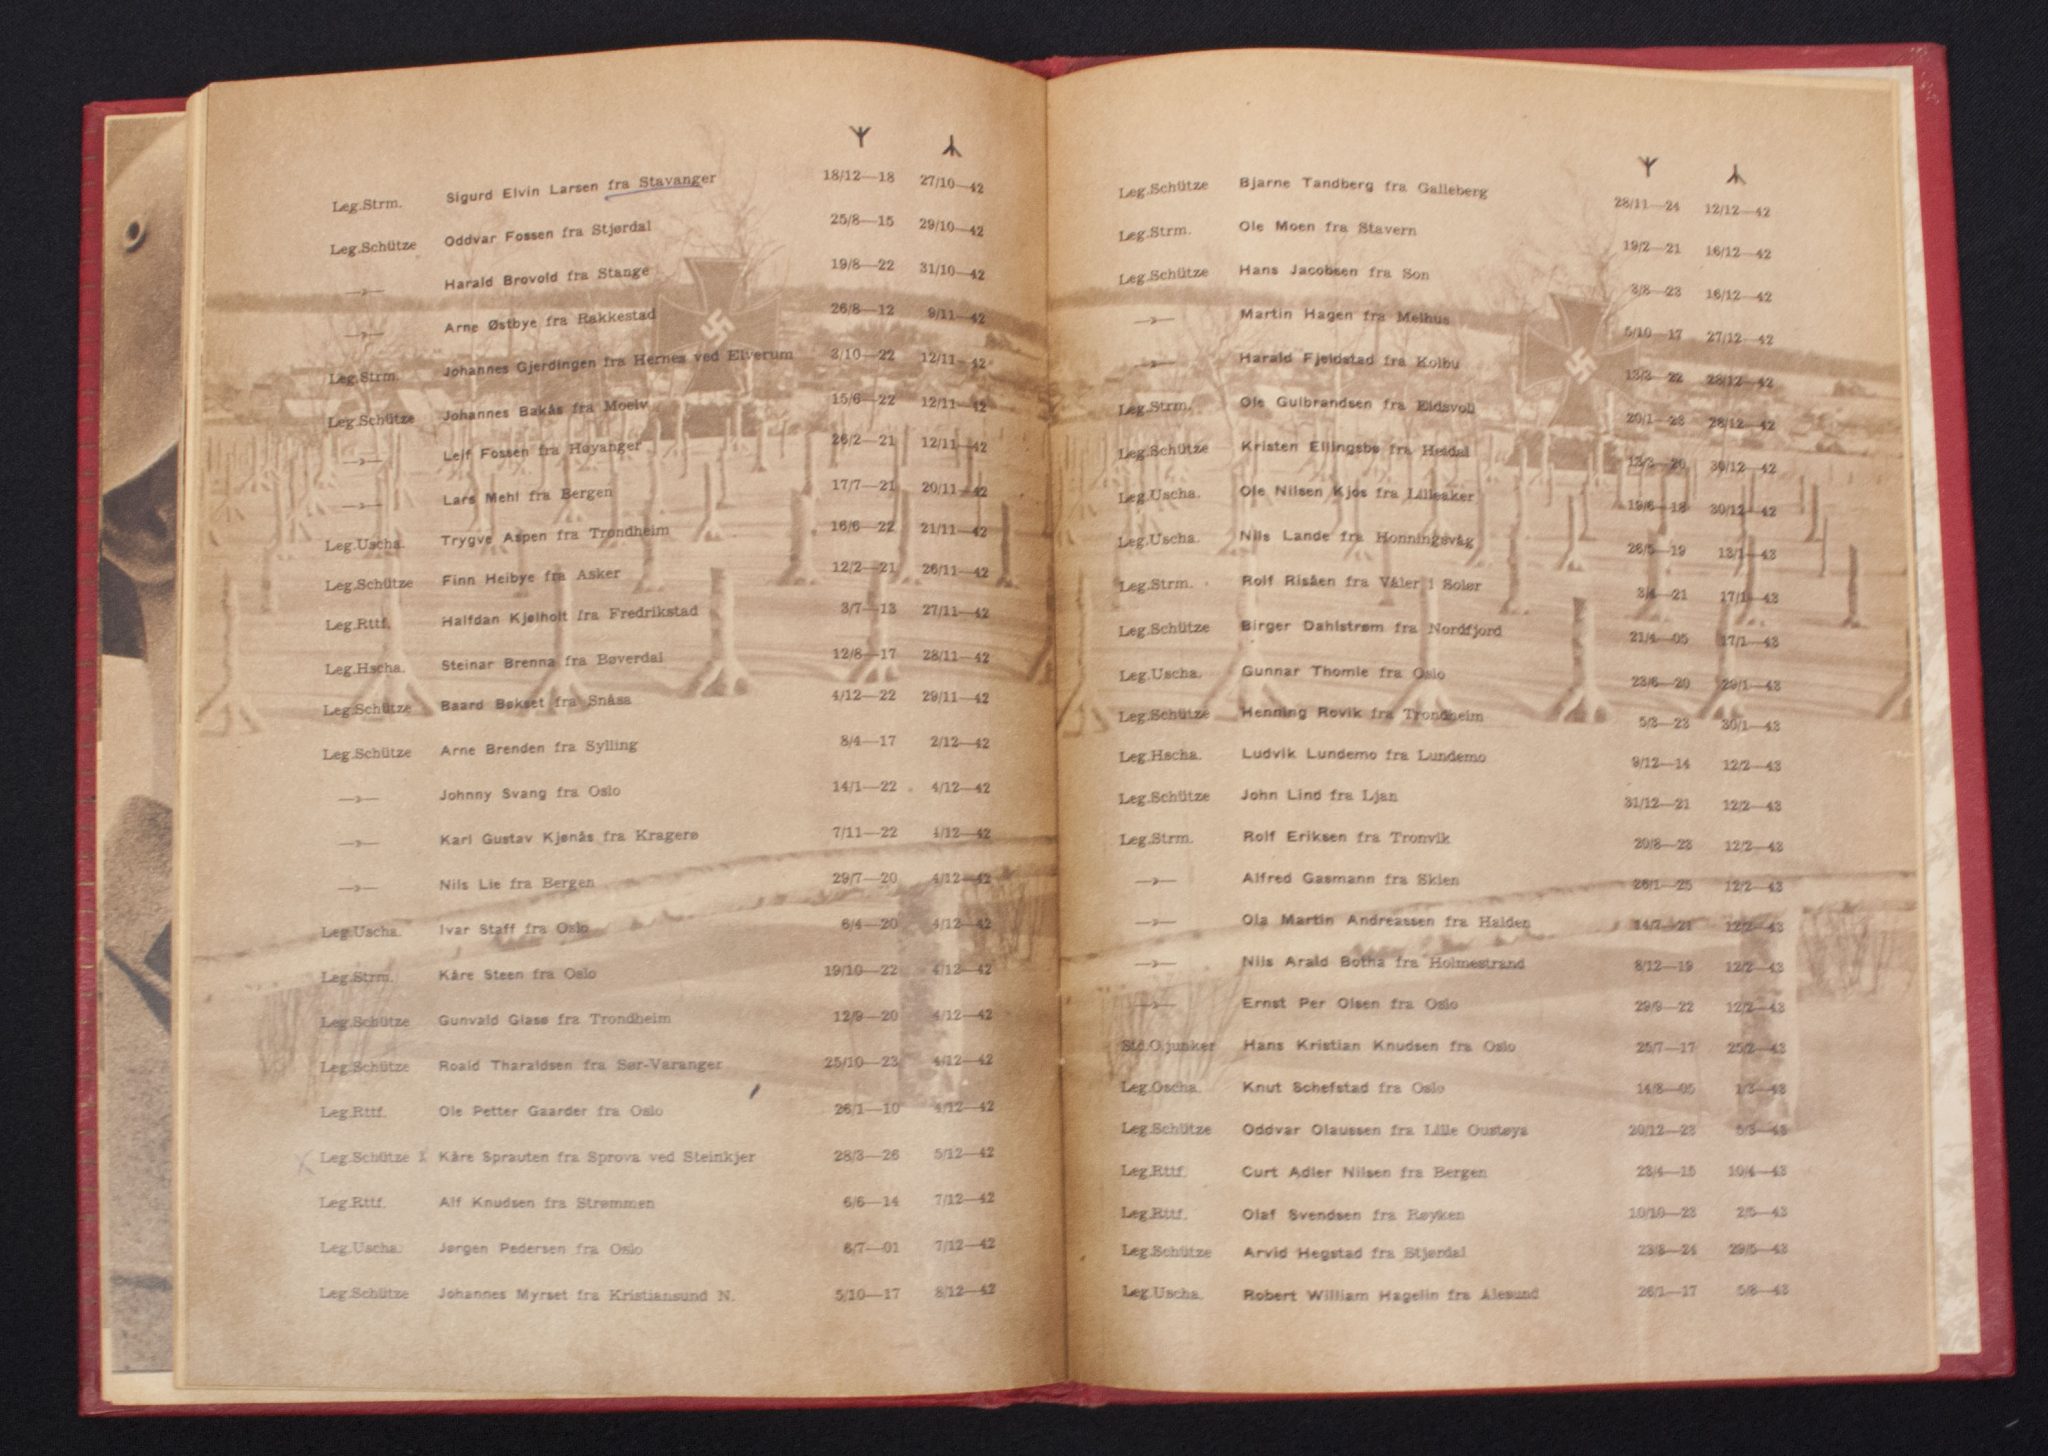 ᛉ ᛣ
Leg.Strm. Sigurd Elvin Larsen fra Stavanger 18/12—18 27/10—42
Leg.Schütze Oddvar Fossen fra Stjørdal 25/8—15 29/10—42
—»— Harald Brovold fra Stange 19/8—22 31/10—42
—»— Arne Østbye fra Rakkestad 26/8—12 9/11—42
Leg.Strm. Johannes Gjerdingen fra Hernes ved Elverum 3/10—22 12/11—42
Leg.Schütze Johannes Bakås fra Moelv 15/6—22 12/11—42
—»— Leif Fossen fra Høyanger 26/2—21 12/11—42
—»— Lars Mehl fra Bergen 17/7—21 20/11—42
Leg.Uscha. Trygve Aspen fra Trondheim 16/6—22 21/11—42
Leg.Schütze Finn Heibye fra Asker 12/2—21 26/11—42
Leg.Rttf. Halfdan Kjølholt fra Fredrikstad 3/7—13 27/11—42
Leg.Hscha. Steinar Brenna fra Bøverdal 12/8—17 28/11—42
Leg.Schütze Baard Bøkset fra Snåsa 4/12—22 29/11—42
Leg.Schütze Arne Brenden fra Sylling 8/4—17 2/12—42
—»— Johnny Svang fra Oslo 14/1—22 4/12—42
—»— Karl Gustav Kjønås fra Kragerø 7/11—22 4/12—42
—»— Nils Lie fra Bergen 29/7—20 4/12—42
Leg.Uscha. Ivar Staff fra Oslo 6/4—20 4/12—42
Leg.Strm. Kåre Steen fra Oslo 19/10—22 4/12—42
Leg.Schütze Gunvald Glasø fra Trondheim 12/9—20 4/12—42
Leg.Schütze Roald Tharaldsen fra Sør-Varanger 25/10—23 4/12—42
Leg.Rttf. Ole Petter Gaarder fra Oslo 26/1—10 4/12—42
X Leg.Schütze X Kåre Sprauten fra Sprova ved Steinkjer 28/3—26 5/12—42
Leg.Rttf. Alf Knudsen fra Strømmen 6/6—14 7/12—42
Leg.Uscha. Jørgen Pedersen fra Oslo 6/7—01 7/12—42
Leg.Schütze Johannes Myrset fra Kristiansund N. 5/10—17 8/12—42
ᛉ ᛣ
Leg.Schütze Bjarne Tandberg fra Galleberg 28/11—24 12/12—42
Leg.Strm. Ole Moen fra Stavern 19/2—21 16/12—42
Leg.Schütze Hans Jacobsen fra Son 3/8—23 16/12—42
—»— Martin Hagen fra Melhus 5/10—17 27/12—42
—»— Harald Fjeldstad fra Kolbu 13/3—22 28/12—42
Leg.Strm. Ole Gulbrandsen fra Eidsvoll 20/1—23 28/12—42
Leg.Schütze Kristen Ellingsbø fra Heidal 30/12—42
Leg.Uscha. Ole Nilsen Kjos fra Lilleaker 19/6—18 30/12—42
Leg.Uscha. Nils Lande fra Honningsvåg 26/5—19 13/1—43
Leg.Strm. Rolf Risåen fra Våler i Solør 3/4—21 17/1—43
Leg.Schütze Birger Dahlstrøm fra Nordfjord 21/4—05 17/1—43
Leg.Uscha. Gunnar Thomle fra Oslo 23/6—20 29/1—43
Leg.Schütze Henning Rovik fra Trondheim 5/3—23 30/1—43
Leg.Hscha. Ludvik Lundemo fra Lundemo 9/12—14 12/2—43
Leg.Schütze John Lind fra Ljan 31/12—21 12/2—43
Leg.Strm. Rolf Eriksen fra Tronvik 20/8—23 12/2—43
—»— Alfred Gasmann fra Skien 26/1—25 12/2—43
—»— Ola Martin Andreassen fra Halden 14/7—21 12/2—43
—»— Nils Arald Botha fra Holmestrand 8/12—19 12/2—43
—»— Ernst Per Olsen fra Oslo 29/9—22 12/2—43
Std.O.junker Hans Kristian Knudsen fra Oslo 25/7—17 25/2—43
Leg.Oscha. Knut Schefstad fra Oslo 14/8—05 1/3—43
Leg.Schütze Oddvar Olaussen fra Lille Oustøya 20/12—23 5/3—43
Leg.Rttf. Curt Adler Nilsen fra Bergen 23/4—15 10/4—43
Leg.Rttf. Olaf Svendsen fra Røyken 10/10—23 2/5—43
Leg.Schütze Arvid Hegstad fra Stjørdal 23/8—24 29/5—43
Leg.Uscha. Robert William Hagelin fra Ålesund 26/1—17 5/8—43